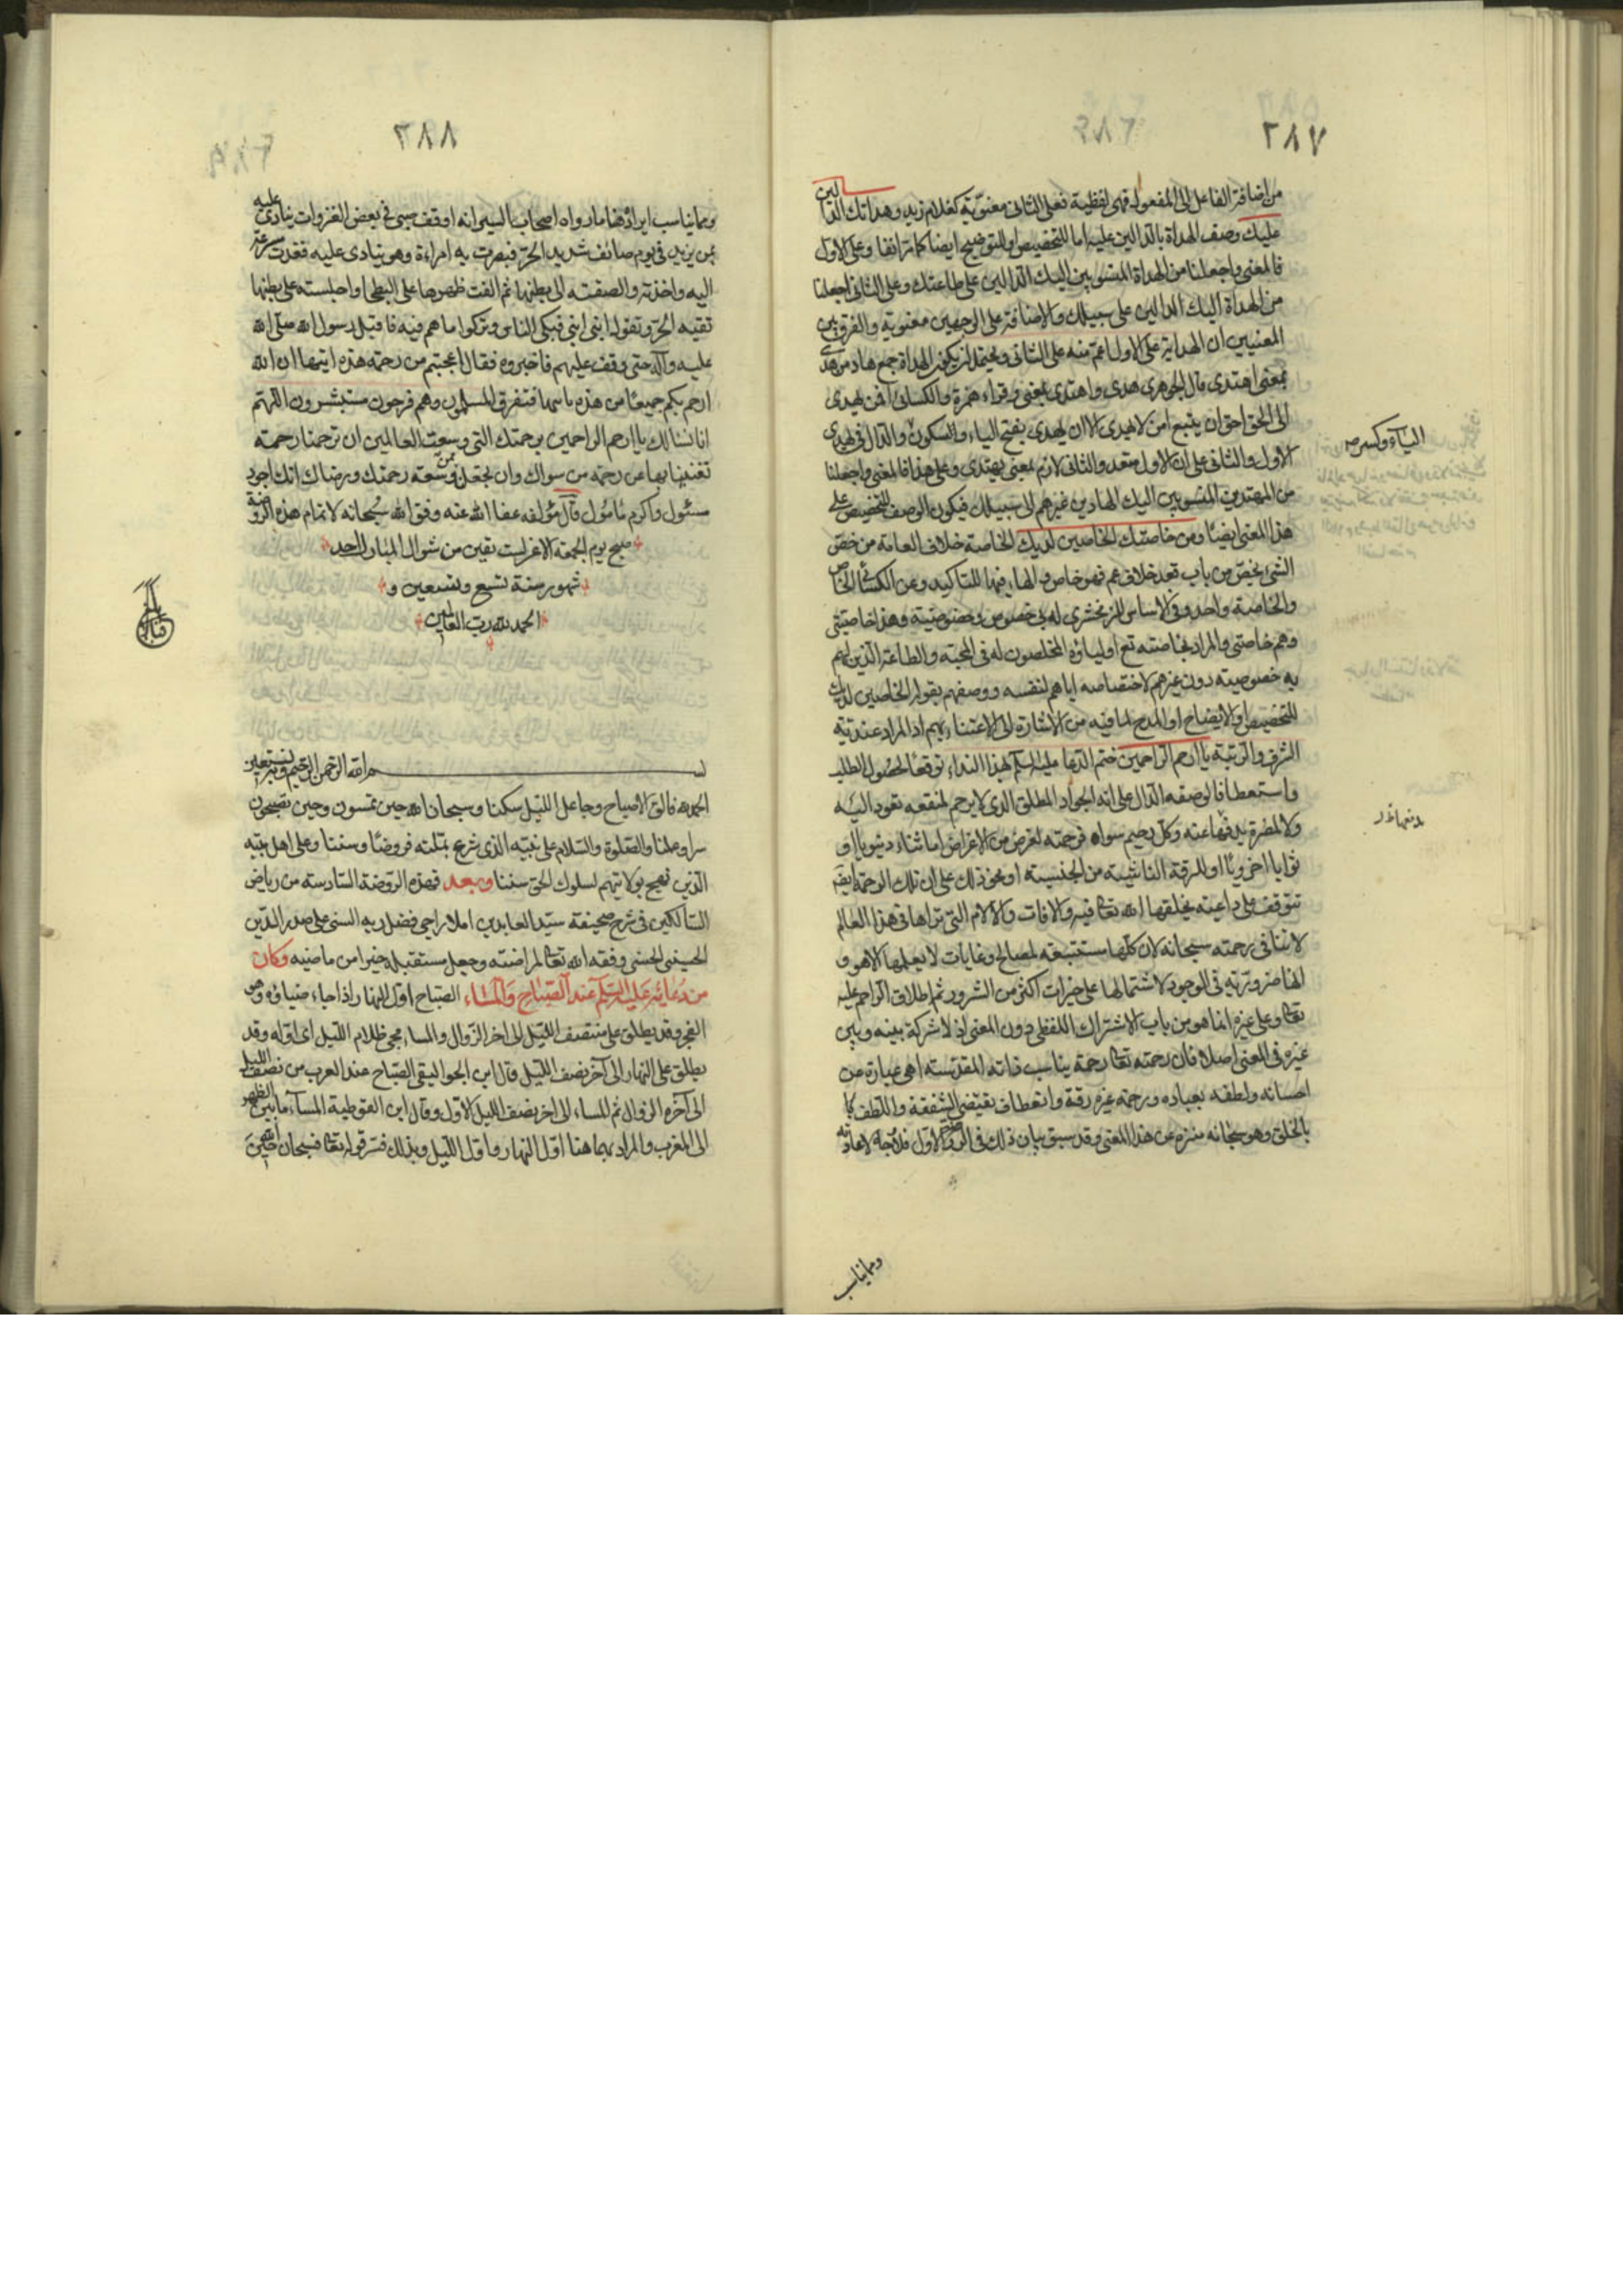 ٢٨٧
من اضافة الفاعل الى المفعول فهى لفظية فعلى الثانى معنوية كغلام زيد وهداتك الدالين
عليك وصف الهداة بالدالين عليه اما للتخصيص او للتوضيح ايضا كما مر انفا وعلى الاول
فالمعنى واجعلنا من الهداة المنسوبين اليك الدالين على طاعتك وعلى الثانى اجعلنا
من الهداة اليك الدالين على سبيلك والاضافة على الوجهين معنوية والفرق بين
المعنيين ان الهداية على الاول اعم منه على الثانى ويحتمل ان يكون الهداة جمع هاد من هدى
بمعنى اهتدى قال الجوهرى هدى واهتدى بمعنى وقراء حمزة والكسائى افمن يهدى
الى الحق احق ان يتبع امن لا يهدى الا ان يهدى بفتح الياء والسكون والدال فى يهدى
الياء وكسر ص
الاول والثانى على ان الاول متعد والثانى لازم بمعنى يهتدى وعلى هذا فالمعنى واجعلنا
من المهتدين المنسوبين اليك الهادين غيرهم الى سبيلك فيكون الوصف للتخصيص على
هذا المعنى ايضا ومن خاصتك الخاصين لديك الخاصة خلاف العامة من خص
الشئ يخص من باب قعد خلاف عم فهو خاص والهاء فيها للتاكيد وعن الكسائى الخاص
والخاصة واحد وفى الاساس للزمخشرى له بى خصوص وخصوصية وهذا خاصتى
وهم خاصتى والمراد بخاصته تع اولياؤه المخلصون له فى المحبة والطاعة الذين لهم
به خصوصية دون غيرهم لاختصاصه اياهم لنفسه ووصفهم بقوله الخاصين لديك
للتخصيص او الايضاح او المدح لما فيه من الاشارة الى الاعتناء بهم اذ المراد عندية
الشرف والرتبة يا ارحم الراحمين ختم الدعا عليه السلم بهذا النداء توقعا لحصول الطلب
واستعطافا لوصفه الدال على انه الجواد المطلق الذى لا يرحم لمنفعة تعود اليه
ولا لمضرة يدفعها عنه وكل رحيم سواه فرحمته لغرض من الاغراض اما ثناء دنيويا او
ثوابا اخرويا او للرقة الناشية من الجنسية او نحو ذلك على ان تلك الرحمة ايضا
تتوقف على داعية يخلقها الله تعالى فيه والافات والالام التى تراها فى هذا العالم
لا تنافى رحمته سبحانه لان كلها مستتبعة لمصالح وغايات لا يعلمها الا هو و
انها ضرورية فى الوجود لاشتمالها على خيرات اكثر من الشرور ثم اطلاق الراحم عليه
تعالى وعلى غيره انما هو من باب الاشتراك اللفظى دون المعنى اذ لا شركة بينه وبين
غيره فى المعنى اصلا فان رحمته تعالى رحمة يناسب ذاته المقدسة اهى عبارة عن
احسانه ولطفه بعباده ورحمة غيره رقة وانعطاف يقتضى الشفقة واللطف كا
بالخلق وهو سبحانه منزه عن هذا المعنى وقد سبق بيان ذلك فى الروضة الاول فلا حاجة لاعادته
ومما يناسب
٢٨٨
ومما يناسب ايراده هنا ما رواه اصحاب السير انه اوقف صبى فى بعض الغزوات ينادى عليه
بمن يزيد فى يوم صائف شديد الحر فبصرت به امراءة وهو ينادى عليه فعدت مسرعة
اليه واخذته والصقته الى بطنها ثم القت ظهرها على البطحا واجلسته على بطنها
تقيه الحر وتقول ابنى ابنى فبكى الناس وتركوا ما هم فيه فاقبل رسول الله صلى الله
عليه وآله حتى وقف عليهم فاخبروه فقال اعجبتم من رحمة هذه ابنها ان الله
ارحم بكم جميعا من هذه بابنها فتفرق المسلمون وهم فرحون مستبشرون اللهم
انا نسالك يا ارحم الراحمين برحمتك التى وسعت العالمين ان ترحمنا رحمة
تغنينا بها عن رحمة من سواك وان تجعلنا ممن وسعته رحمتك ورضاك انك اجود
مسئول واكرم مأمول قال مؤلفه عفا الله عنه وفق الله سبحانه لاتمام هذه الروضة
صبح يوم الجمعة الاغر لست بقين من شوال المبارك احد
شهور سنة تسع وتسعين و
الحمد لله رب العالمين
بسم الله الرحمن الرحيم وبه نستعين
الحمد لله فالق الاصباح وجاعل الليل سكنا وسبحان الله حين تمسون وحين تصبحون
سرا وعلنا والصلوة والسلام على نبيه الذى شرع بملته فروضا وسننا وعلى اهل بيته
الذين نهج بولايتهم لسلوك الحق سننا وبعد فهذه الروضة السادسة من رياض
السالكين فى شرح صحيفة سيد العابدين املاء راجى فضل ربه السنى على صدر الدين
الحسينى الحسنى وفقه الله تعالى لمراضته وجعل مستقبله خيرا من ماضيه وكان
من دعائه عليه السلم عند الصباح والمساء الصباح اول النهار اذا جاء ضياؤه وهو
الفجر وقد يطلق على منتصف الليل الى اخر الزوال والمساء مجى ظلام الليل اى اوله وقد
يطلق على النهار الى آخر نصف الليل قال ابن الجواليقى الصباح عند العرب من نصف الليل
الى آخره الزوال ثم المساء الى اخر نصف الليل الاول وقال ابن القوطية المساء ما بين الظهر
الى المغرب والمراد بهما هنا اول النهار واول الليل وبذلك فسر قوله تعالى فسبحان الله حين